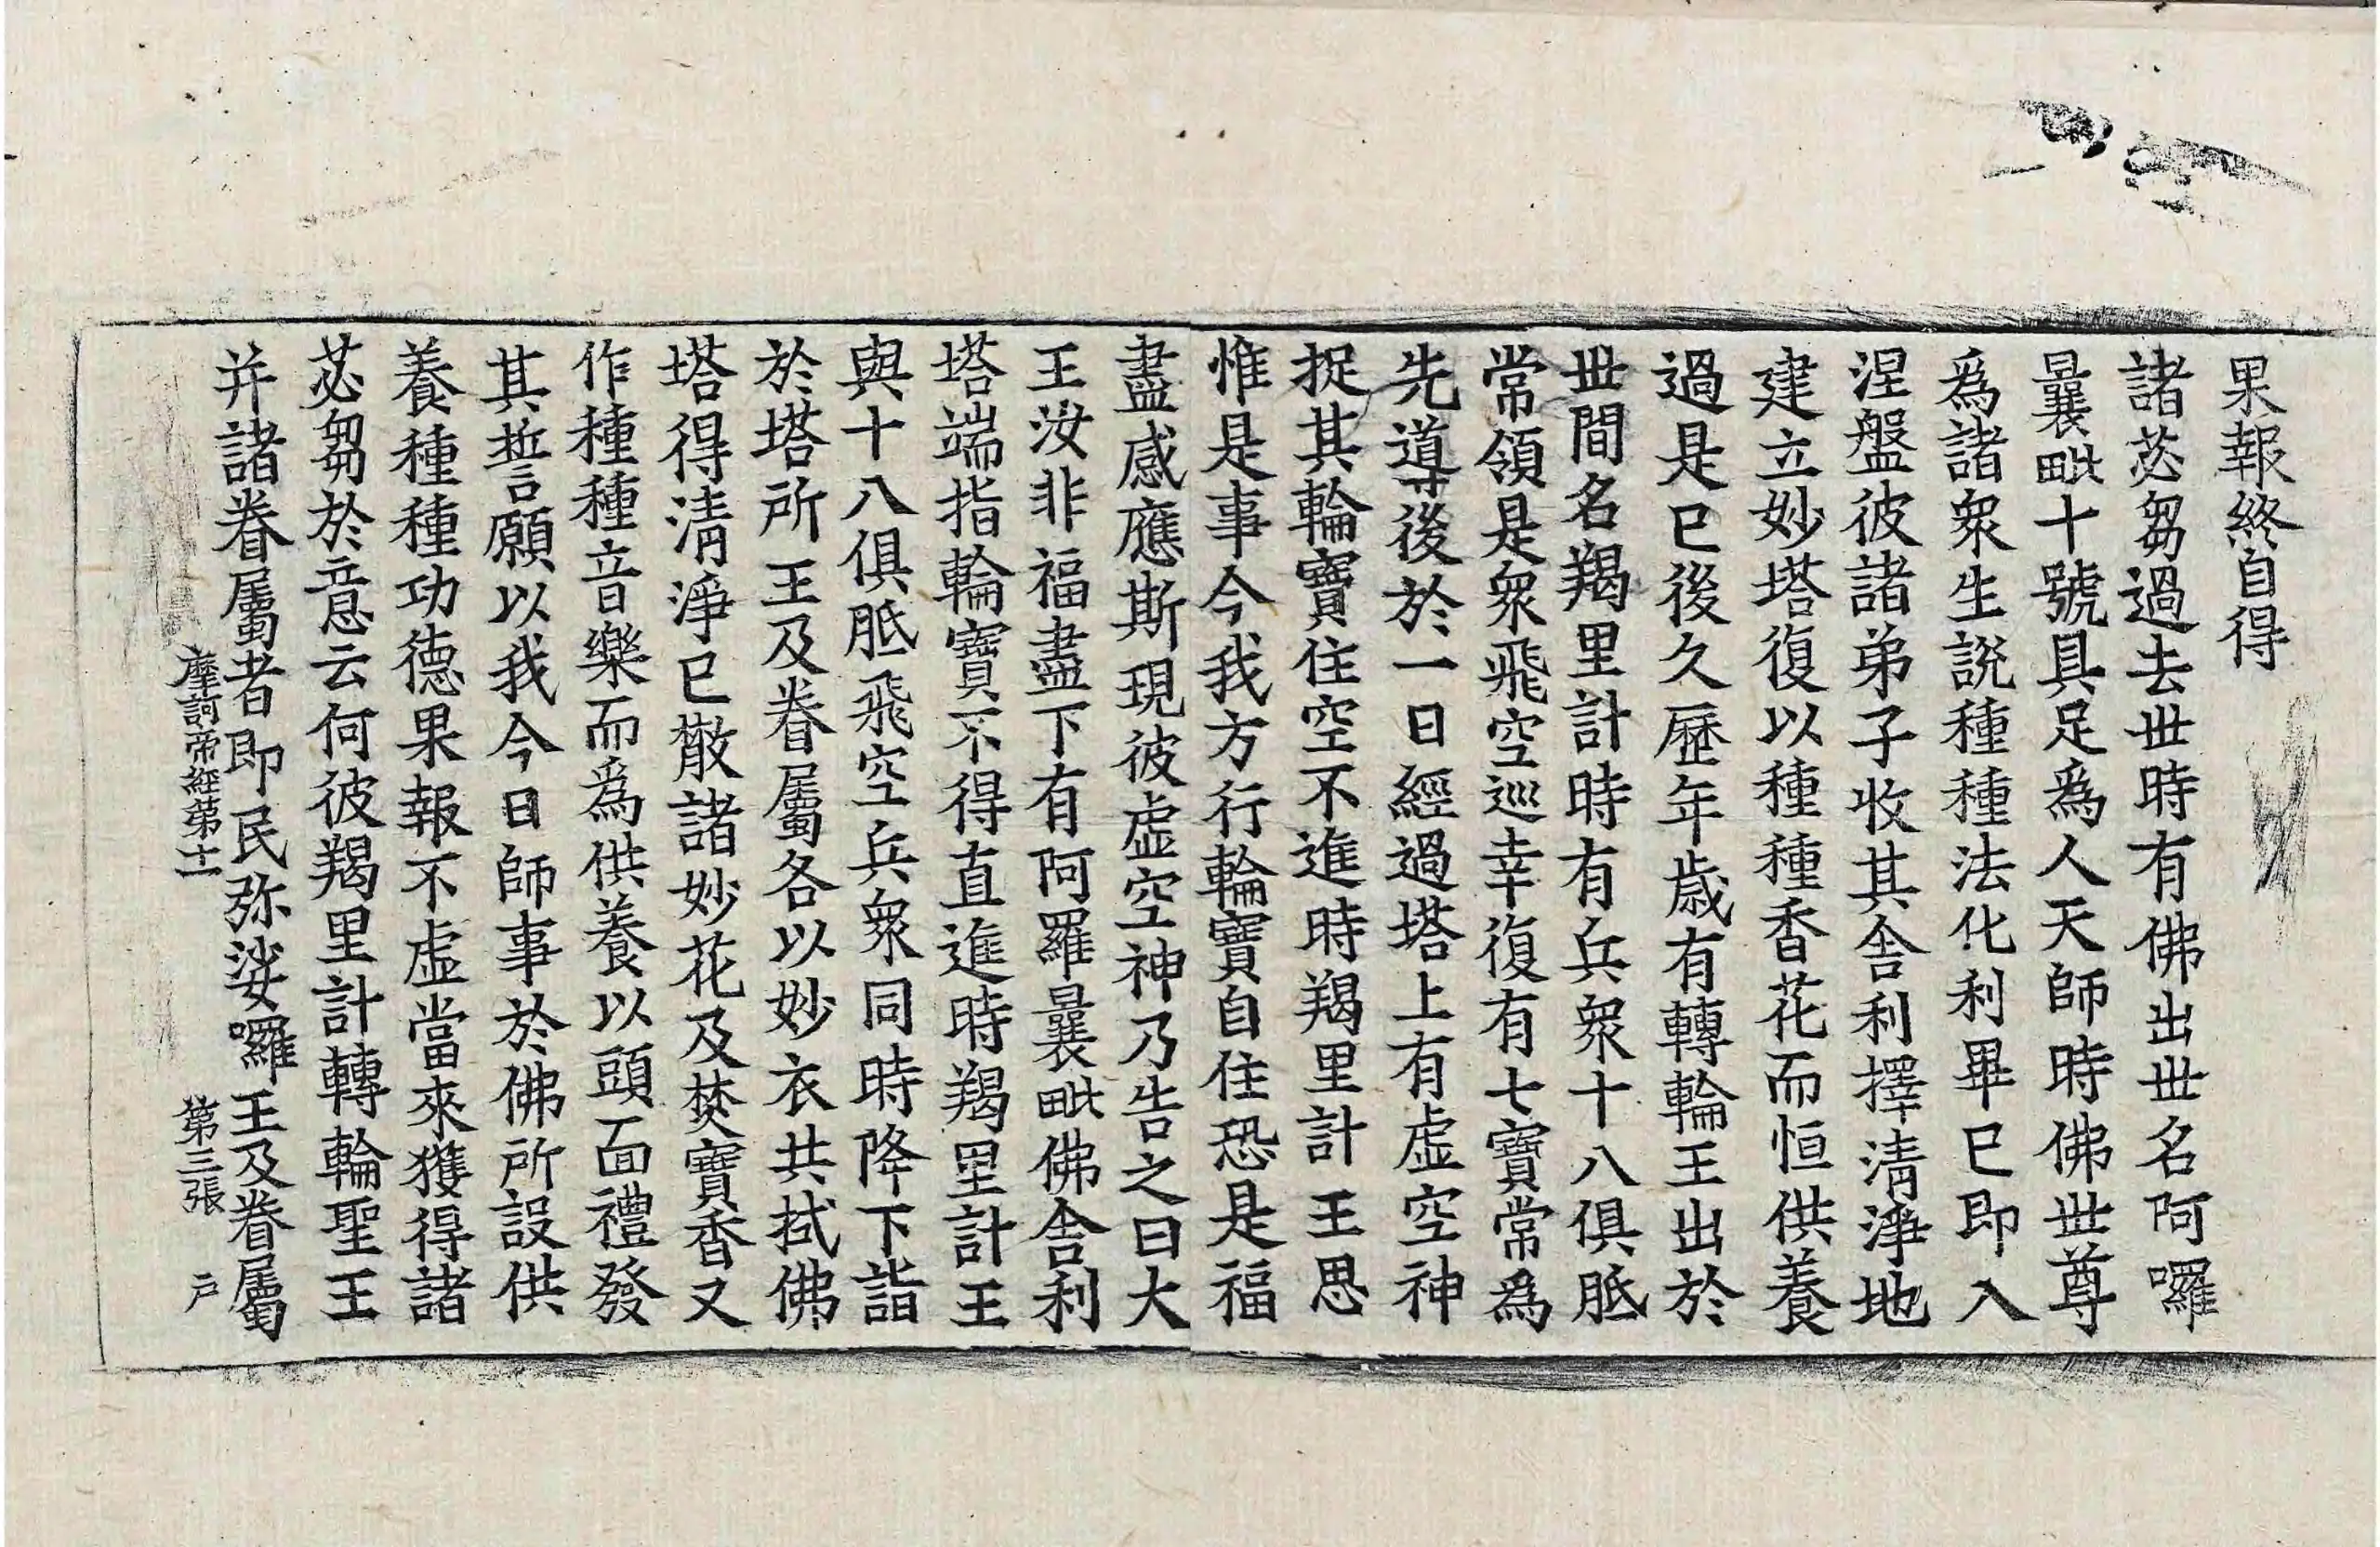 果報終自得
諸苾芻過去世時有佛出世名阿囉
曩毗十號具足爲人天師時佛世尊
爲諸衆生說種種法化利畢已即入
涅盤彼諸弟子收其舍利擇清淨地
建立妙塔復以種種香花而恒供養
過是已後久歷年歲有轉輪王出於
世間名羯里計時有兵衆十八俱胝
常領是衆飛空巡幸復有七寶常爲
先導後於一日經過塔上有虛空神
捉其輪寶住空不進時羯里計王思
惟是事今我方行輪寶自住恐是福
盡感應斯現彼虛空神乃告之曰大
王汝非福盡下有阿羅曩毗佛舍利
塔端指輪寶不得直進時羯里計王
與十八俱胝飛空兵衆同時降下詣
於塔所王及眷屬各以妙衣共拭佛
塔得清淨已散諸妙花及焚寶香又
作種種音樂而爲供養以頭面禮發
其誓願以我今日師事於佛所設供
養種種功德果報不虛當來獲得諸
苾芻於意云何彼羯里計轉輪聖王
并諸眷屬者即民弥娑囉王及眷屬
摩訶帝經第十一 第三張 户